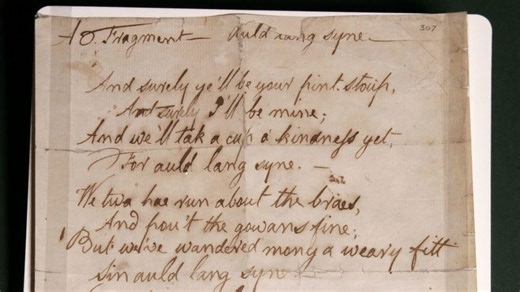 307
Fragment — auld lang syne —
And surely ye'll be your pint stoup,
And surely I'll be mine;
And we'll tak a cup o kindness yet,
For auld lang syne. —
We twa hae run about the braes,
And pou't the gowans fine;
But we've wandered mony a weary fitt
sin auld lang syne